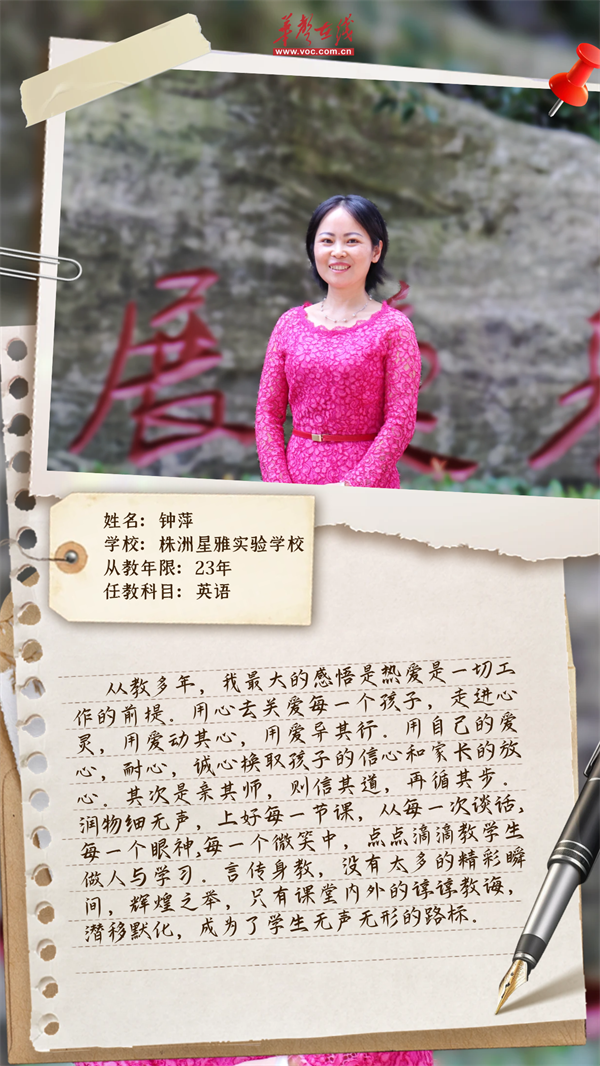 华声在线
www.voc.com.cn
展
姓名：钟萍
学校：株洲星雅实验学校
从教年限：23年
任教科目：英语
从教多年，我最大的感悟是热爱是一切工
作的前提。用心去关爱每一个孩子，走进心
灵，用爱动其心，用爱导其行。用自己的爱
心，耐心，诚心换取孩子的信心和家长的放
心。其次是亲其师，则信其道，再循其步。
润物细无声，上好每一节课，从每一次谈话，
每一个眼神,每一个微笑中，点点滴滴教学生
做人与学习。言传身教，没有太多的精彩瞬
间，辉煌之举，只有课堂内外的谆谆教诲，
潜移默化，成为了学生无声无形的路标。